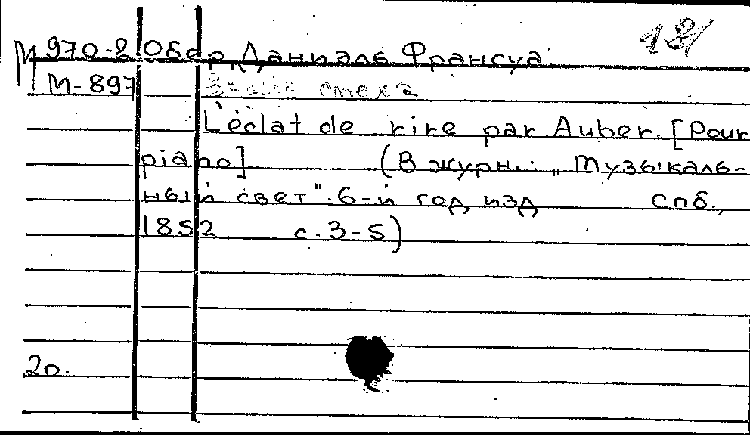 М 970-2 Обер, Даниэль Франсуа.
М-897 смеха
L'éclat de rire par Auber. [Pour
piano] (В журн.: „Музыкаль-
ный свет". 6-й год изд. Спб.,
1852 с. 3-5)
20.